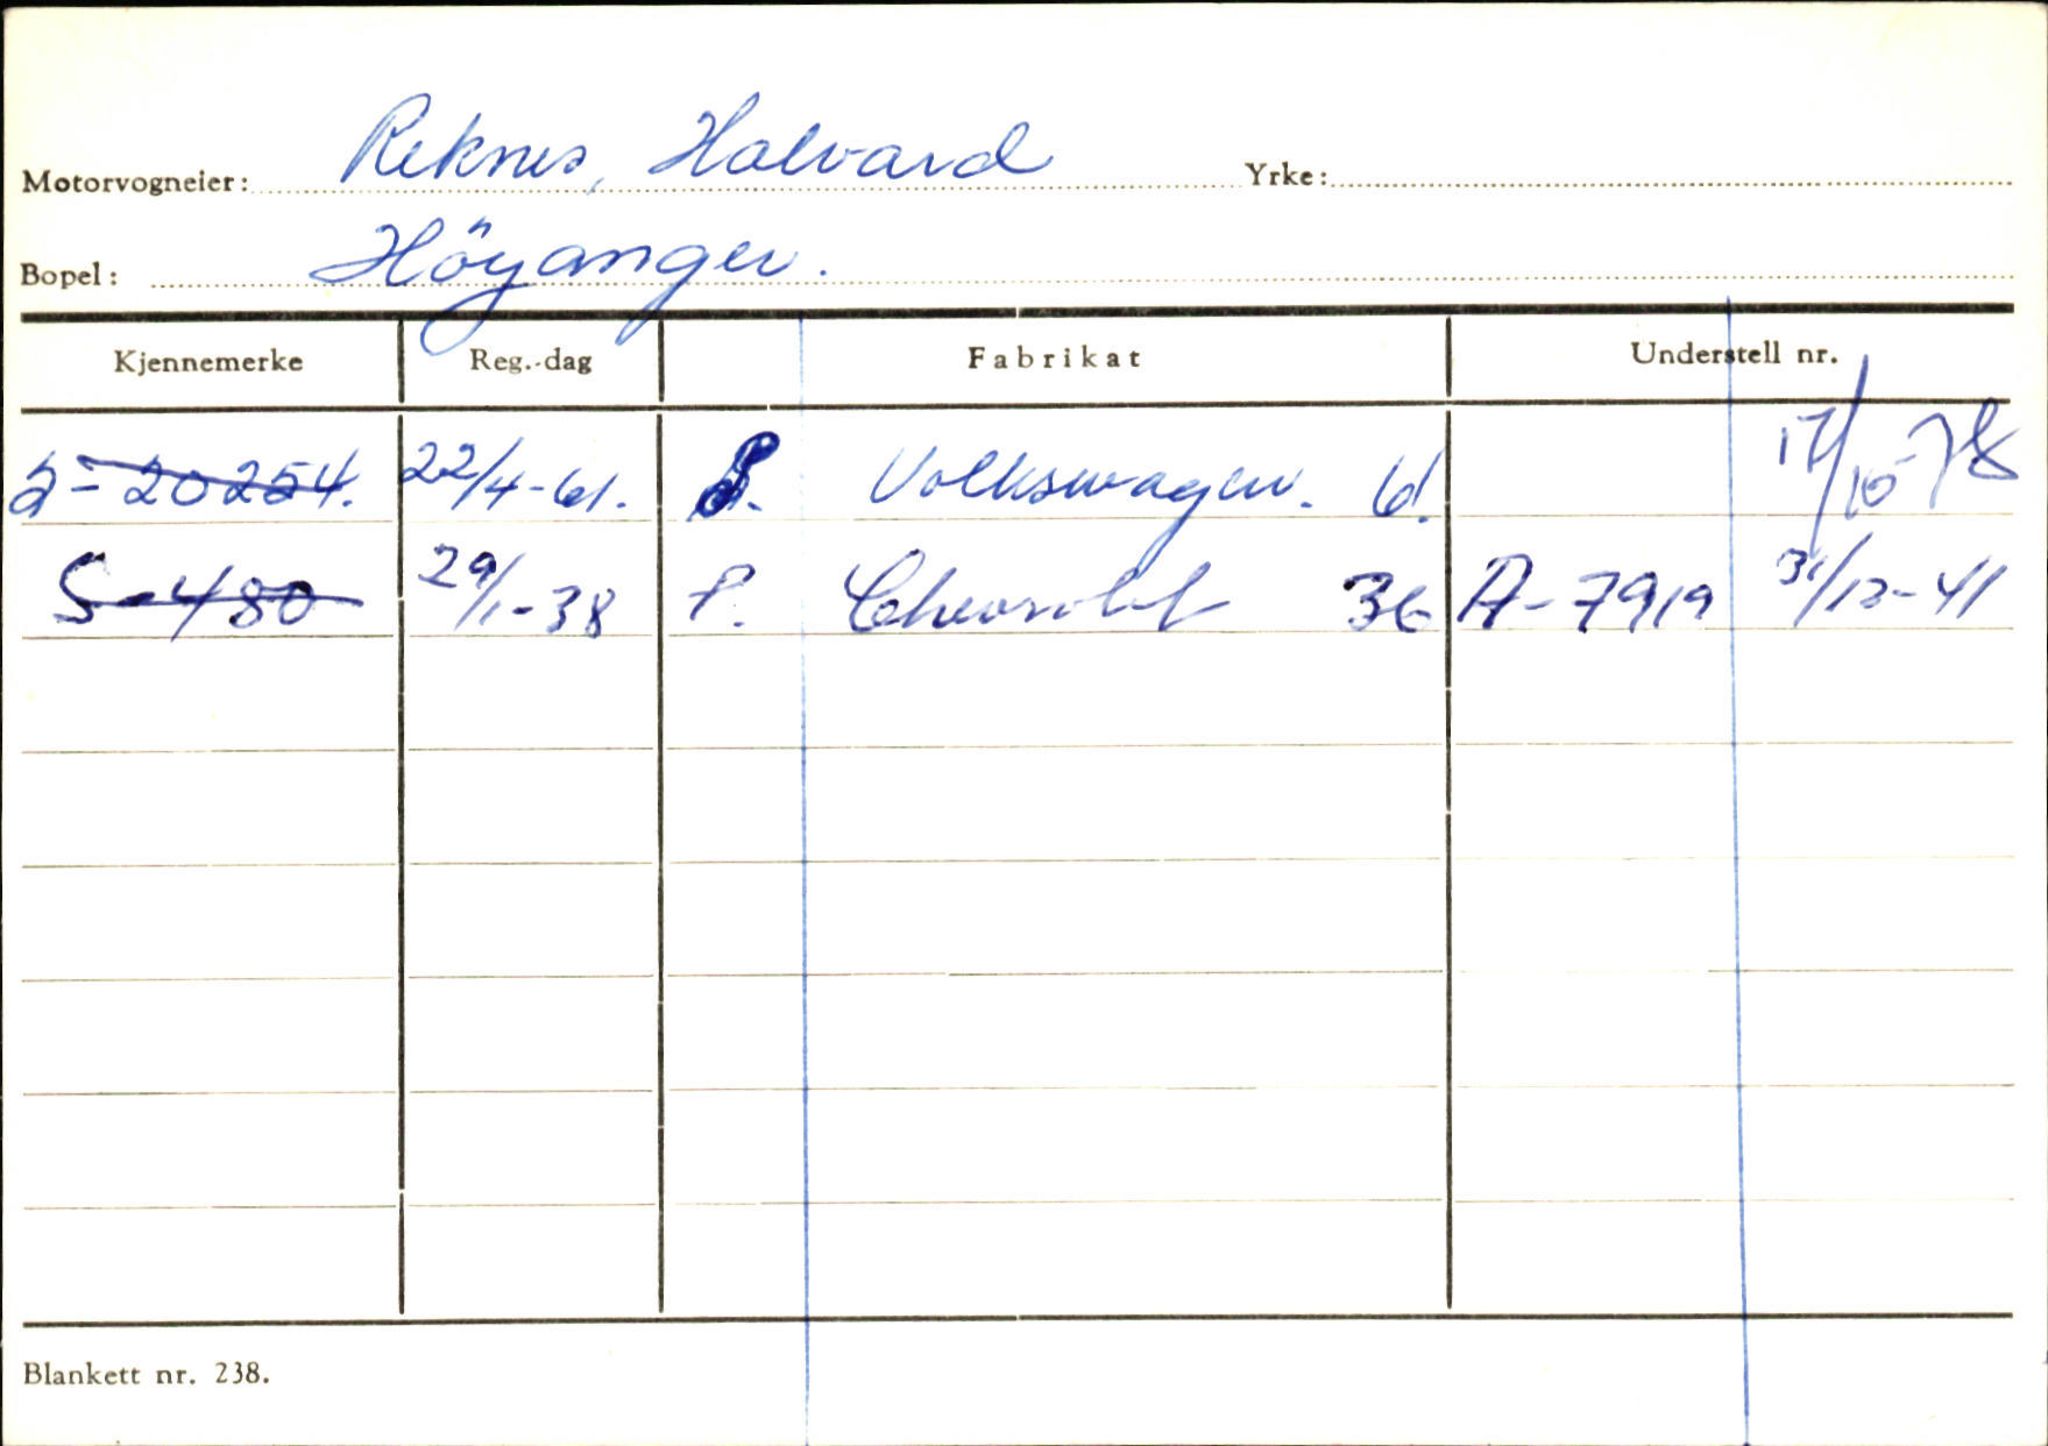 Motorvogneier: Reknes, Halvard Yrke:
Bopel: Höyanger.
Kjennemerke Reg.-dag Fabrikat Understell nr.
S-20254. 22/4-61. P. Volkswagen. 61. 17/10-78
S-480 29/1-38 P. Chevrolet 36 A-7919 31/12-41
Blankett nr. 238.